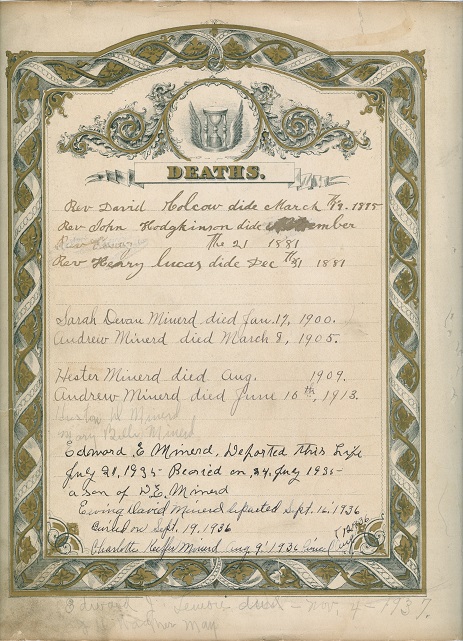 DEATHS.
Rev David Holcow dide March 1875
Rev John Hodgkinson dide ember
The 21 1881
Rev Henry Lucas dide Dec 31 1881
Sarah Devan Minerd died Jan. 17, 1900.
Andrew Minerd died March 8, 1905.
Hester Minerd died Aug. 1909.
Andrew Minerd died June 10th, 1913.
Minerd
Mary Minerd
Edward E Minerd, Departed this Life
July 21, 1935- Beoried on, 24, July 1935-
a son of D.E. Minerd
Ewing David Minerd departed Sept. 16, 1936
Buried on Sept. 19, 1936
Charlotte Keeffer Minerd Aug 9, 1936
Edward J. died - Nov, 4 - 1937.
Wagner May